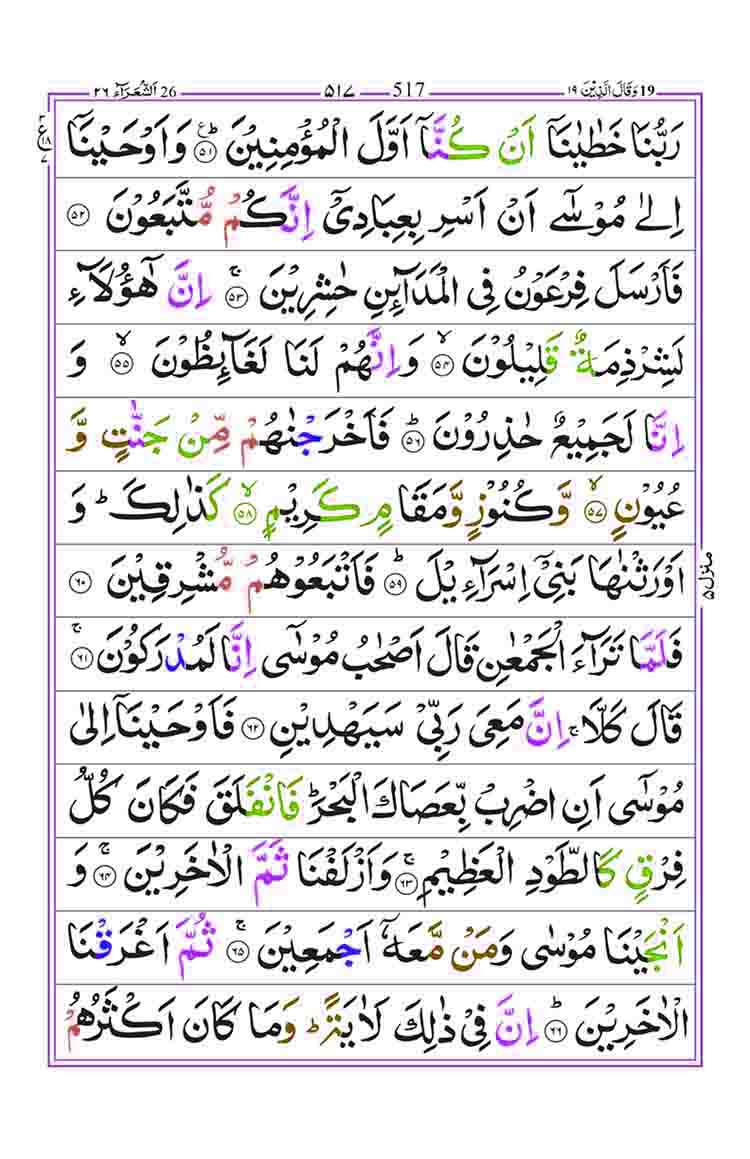 19 وَقَالَ الَّذِيْنَ ١٩ 517 ٥١٧ 26 اَلشُّعَرَآء ٢٦
رَبُّنَا خَطٰيٰنَاۤ اَنْ كُنَّاۤ اَوَّلَ الْمُؤْمِنِيْنَ ؕ۠ ٥١ وَ اَوْحَيْنَاۤ
اِلٰى مُوْسٰٓى اَنْ اَسْرِ بِعِبَادِيْۤ اِنَّكُمْ مُّتَّبَعُوْنَ ٥٢
فَاَرْسَلَ فِرْعَوْنُ فِي الْمَدَآئِنِ حٰشِرِيْنَ ۚ ٥٣ اِنَّ هٰۤؤُلَآءِ
لَشِرْذِمَةٌ قَلِيْلُوْنَ ۙ ٥٤ وَ اِنَّهُمْ لَنَا لَغَآئِظُوْنَ ۙ ٥٥ وَ
اِنَّا لَجَمِيْعٌ حٰذِرُوْنَ ؕ ٥٦ فَاَخْرَجْنٰهُمْ مِّنْ جَنّٰتٍ وَّ
عُيُوْنٍ ۙ ٥٧ وَّ كُنُوْزٍ وَّ مَقَامٍ كَرِيْمٍ ۙ ٥٨ كَذٰلِكَ ؕ وَ
اَوْرَثْنٰهَا بَنِيْۤ اِسْرَآءِيْلَ ؕ ٥٩ فَاَتْبَعُوْهُمْ مُّشْرِقِيْنَ ٦٠
فَلَمَّا تَرَآءَ الْجَمْعٰنِ قَالَ اَصْحٰبُ مُوْسٰۤى اِنَّا لَمُدْرَكُوْنَ ۚ ٦١
قَالَ كَلَّا ۚ اِنَّ مَعِيَ رَبِّيْ سَيَهْدِيْنِ ٦٢ فَاَوْحَيْنَاۤ اِلٰى
مُوْسٰۤى اَنِ اضْرِبْ بِّعَصَاكَ الْبَحْرَ ؕ فَانْفَلَقَ فَكَانَ كُلُّ
فِرْقٍ كَالطَّوْدِ الْعَظِيْمِ ۚ ٦٣ وَ اَزْلَفْنَا ثَمَّ الْاٰخَرِيْنَ ۚ ٦٤ وَ
اَنْجَيْنَا مُوْسٰى وَ مَنْ مَّعَهٗۤ اَجْمَعِيْنَ ۚ ٦٥ ثُمَّ اَغْرَقْنَا
الْاٰخَرِيْنَ ؕ ٦٦ اِنَّ فِيْ ذٰلِكَ لَاٰيَةً ؕ وَ مَا كَانَ اَكْثَرُهُمْ
ع
١٨
٧
منزل ٥